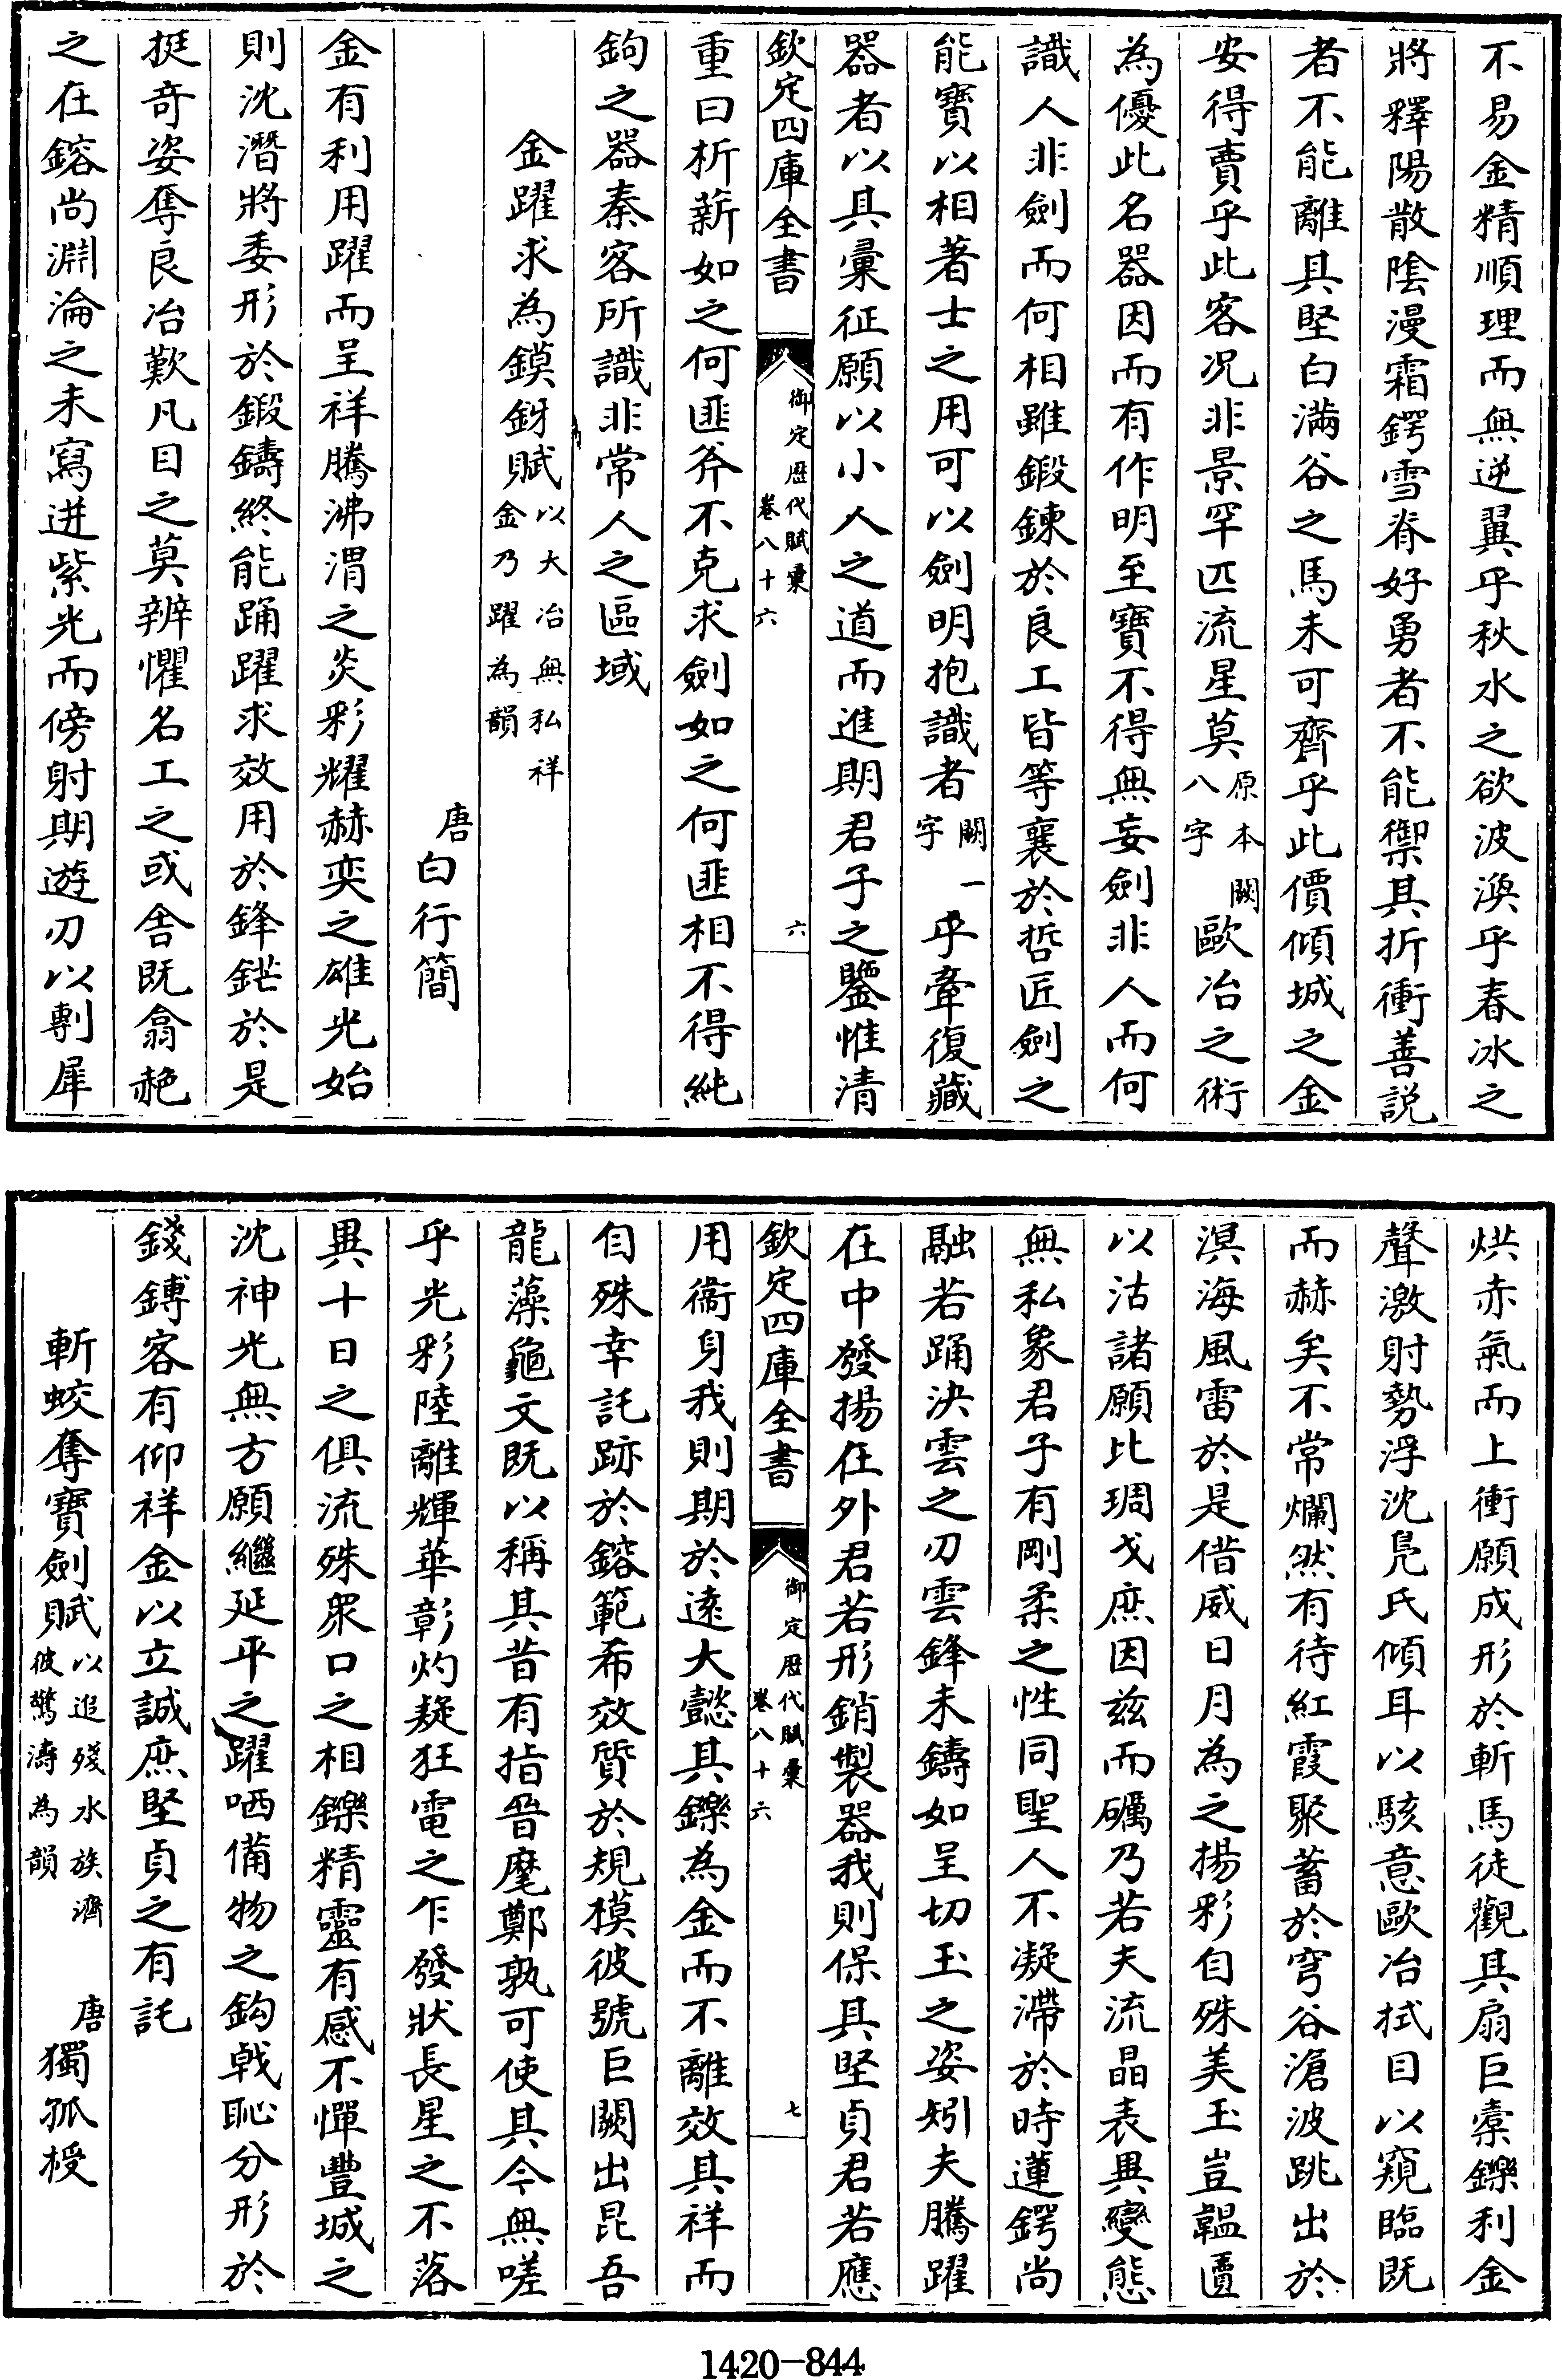 不易金精順理而無逆翼乎秋水之欲波渙乎春冰之
將釋陽散陰漫霜鍔雪脊好勇者不能禦其折衝善説
者不能離具堅白滿谷之馬未可齊乎此價傾城之金
安得賣乎此客况非景罕匹流星莫原本闕八字歐冶之術
為優此名器因而有作明至寶不得無妄劍非人而何
識人非劍而何相雖鍛鍊於良工皆等襄於哲匠劍之
能寶以相著士之用可以劍明抱識者闕一字乎牽復藏
器者以具彙征願以小人之道而進期君子之鑒惟清
欽定四庫全書 御定歴代賦彙卷八十六 六
重曰析薪如之何匪斧不克求劍如之何匪相不得純
鉤之器秦客所識非常人之區域
金躍求為鏌釾賦以大冶無私祥金乃躍為韻
唐白行簡
金有利用躍而呈祥騰沸渭之炎彩耀赫奕之雄光始
則沈潛將委形於鍛鑄終能踊躍求效用於鋒鋩於是
挺奇姿奪良冶歎凡目之莫辨懼名工之或舍既翕赩
之在鎔尚淵淪之未寫迸紫光而傍射期遊刃以剸犀
烘赤氣而上衝願成形於斬馬徒觀其扇巨橐鑠利金
聲激射勢浮沈鳧氏傾耳以駭意歐冶拭目以窺臨既
而赫矣不常爛然有待紅霞聚蓄於穹谷滄波跳出於
溟海風雷於是借威日月為之揚彩自殊美玉豈韞匵
以沽諸願比琱戈庶因兹而礪乃若夫流晶表異變態
無私象君子有剛柔之性同聖人不凝滯於時蓮鍔尚
融若踊決雲之刃雲鋒未鑄如呈切玉之姿矧夫騰躍
在中發揚在外君若形銷製器我則保具堅貞君若應
欽定四庫全書 御定歴代賦彙卷八十六 七
用衞身我則期於遠大懿其鑠為金而不離效其祥而
自殊幸託跡於鎔範希效質於規模彼號巨闕出昆吾
龍藻龜文既以稱其昔有指晉麾鄭孰可使其今無嗟
乎光彩陸離輝華彰灼疑狂電之乍發狀長星之不落
異十日之俱流殊衆口之相鑠精靈有感不憚豐城之
沈神光無方願繼延平之躍哂備物之鈎戟恥分形於
錢鎛客有仰祥金以立誠庶堅貞之有託
斬蛟奪寶劍賦以追殘水族濟彼驚濤為韻 唐獨孤授
1420-844